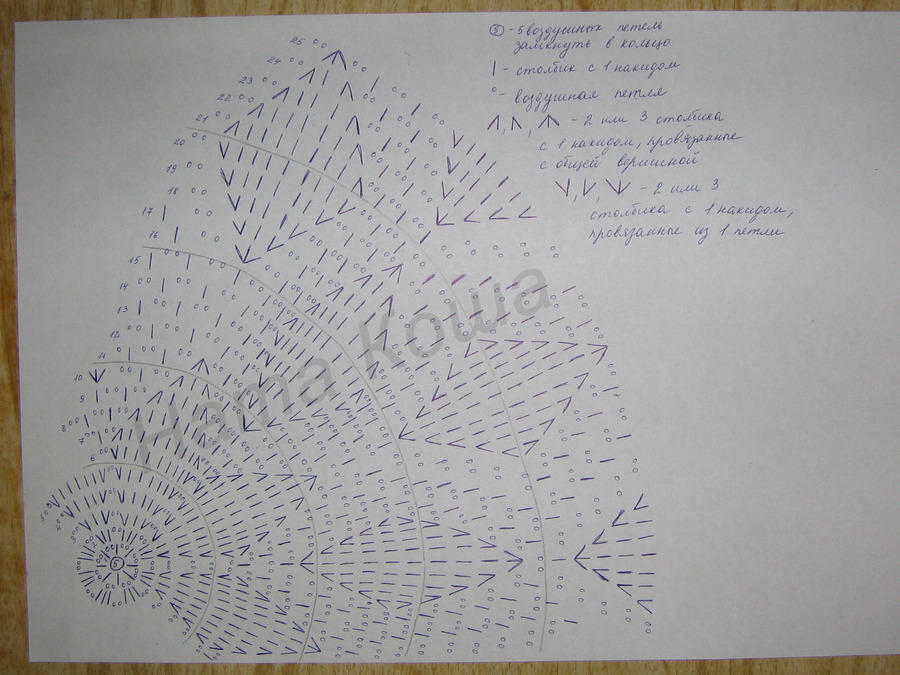 ⑤ - 5 воздушных петель
замкнуть в кольцо
| - столбик с 1 накидом
° - воздушная петля
- 2 или 3 столбика
с 1 накидом, провязанные
с общей вершиной
- 2 или 3
столбика с 1 накидом,
провязанные из 1 петли
25
24
23
22
21
20
19
18
17
16
15
14
13
12
11
10
9
8
7
6
5
5
Ната Коша